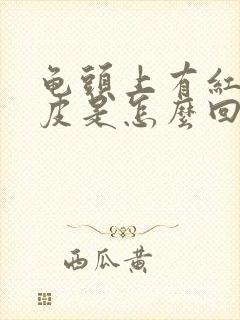 龟頭上有紅
皮是怎麼回
西瓜黄